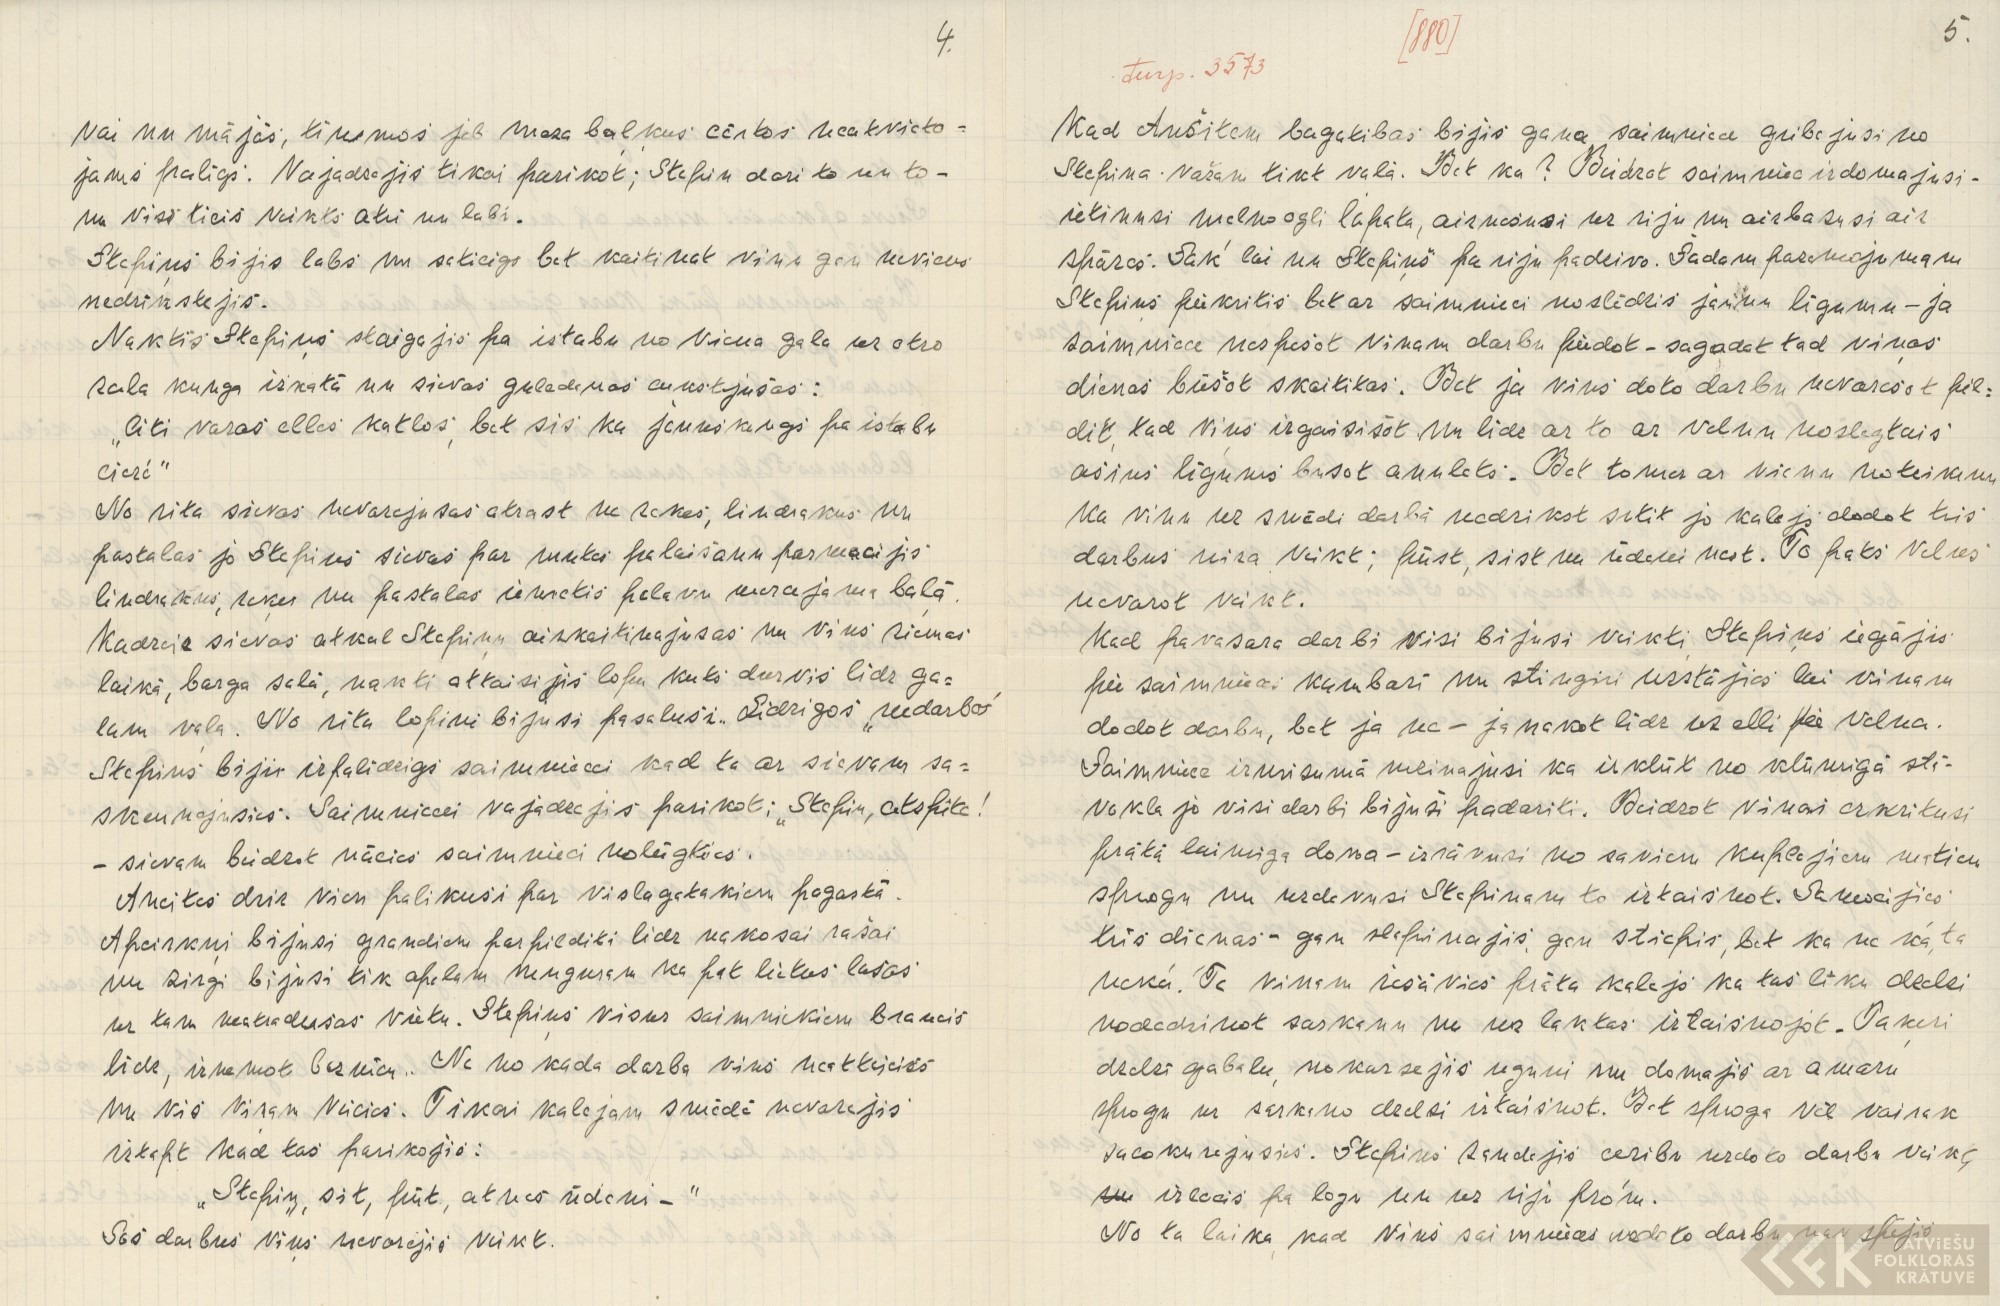 4.
vai nu mājās, tīrumos jeb meža baļķus cērtos neatvieto=
jams palīgs. Vajadzejis tikai pavikot; Stepin dari to un to -
un viss ticis veikts atri un labi.
Stepiņš bijis labs un saticigs bet kaitinat vinu gan neviens
nedrikstejis.
Naktīs Stepiņš staigajis pa istabu no viena gala uz otro
zala kunga izskatā un sievas guledamas curkstejušas:
„Citi varas elles katlos, bet sis ka jaunskungs pa istabu
cierē"
No rita sievas nevarejusas atrast ne zekes, lindrakus un
pastalas jo Stepiņš sievas par mutes palaišanu parmacijis
lindrakus, zekes un pastalas iemetis pelavu
Kadreiz sievas atkal Stepiņu aizkaitinajusas un vins ziemas
laikā, barga salā, nakti attaisijis lopu kuts durvis līdz ga=
lam vaļa. No rita lopini bijusi pasalusi. Lidzigos „nedarbos
Stepiņš bijis izpalidzigs saimniecei kad ta ar sievam sa=
skennejusies. Saimniecei vajadzejis parikot; „Stepin, atspite!
- sievam beidzot nācies saimnieci nolūgties.
Ancites driz vien palikusi par visbagatakiem pagastā.
Apcirkņi bijusi graudiem parpilditi lidz nakosai ražai
un zirgi bijusi tik apaļam muguram ka pat lietus lašas
uz tam neatradušas vietu. Stepiņš visur saimniekiem braucis
lidz, iznemot baznicu. Ne no kada darba vins neatteicies
un vis viņam veicies. Tikai kalejam smēdē nevarejis
iztapt kad tas parikojis:
„Stepiņ, sit, pūt, atnes ūdeni-"
Šos darbus viņš nevarejis veikt.
[880]
turp. 3573
5.
Kad Ancitem bagatibas bijis gana, saimniece gribejusi no
Stepina važam tikt vaļā. Bet ka? Beidzot saimniece izdomajusi-
ietinusi melno ogli lapata, aiznesusi uz riju un aizbazusi aiz
spāres. Sak' lai nu Stepiņš pa riju padzivo. Šadam parmajumam
Stepiņš piekritis bet ar saimnieci noslēdzis jaunu līgumu - ja
saimniece nespešot vinam darbu piedot - sagadat tad viņas
dienas būšot skaititas. Bet ja vins doto darbu nevarešot pil=
dit, tad viņš izgaisišot un lidz ar to ar velnu noslegtais
ašins lígums bušot anulets. Bet tomer ar vienu noteikumu
ka vinu uz smēdi darbā nedrikst sutit jo kalejs dodot tris
darbus reiza veikt; pūst, sist un ūdeni nest. To pats velns
nevarot veikt.
Kad pavasara darbi visi bijusi veikti, Stepiņš iegājis
pie saimnieces kambarī un stingri uzstājies lai vinam
dodot darbu, bet ja ne - ja nakot lidz uz elli pie velna.
Saimniece izmisumā meģinajusi ka izklūt no kļūmīgā stā-
vokla jo visi darbi bijuši padariti. Beidzot vinai iekritusi
prātā laimiga doma - izrāvusi no saviem kuplajiem matiem
sprogu un uzdevusi Stepinam to iztaisnot. Samocijies
tris dienas - gan slapinajis, gan stiepis, bet ka ne kā, ta
nekā. Te vinam iešāvies prāta kalejs ka tas liku dzelzi
nodedzinot sarkanu un uz laktas iztaisnojot. Pakeri
dzelzs gabalu, nokarsejis uguni un domajis ar a maru
sprogu uz sarkano dzelzi iztaisnot. Bet sproga vēl vairak
sacokurojusies. Stepiņš zaudejis ceribu uzdoto darbu veikt,
izlecis pa logu un uz riju prom.
No ta laika, kad vins saimnieces uzdoto darbu nav spejis
LATVIEŠU
FOLKLORAS
KRĀTUVE